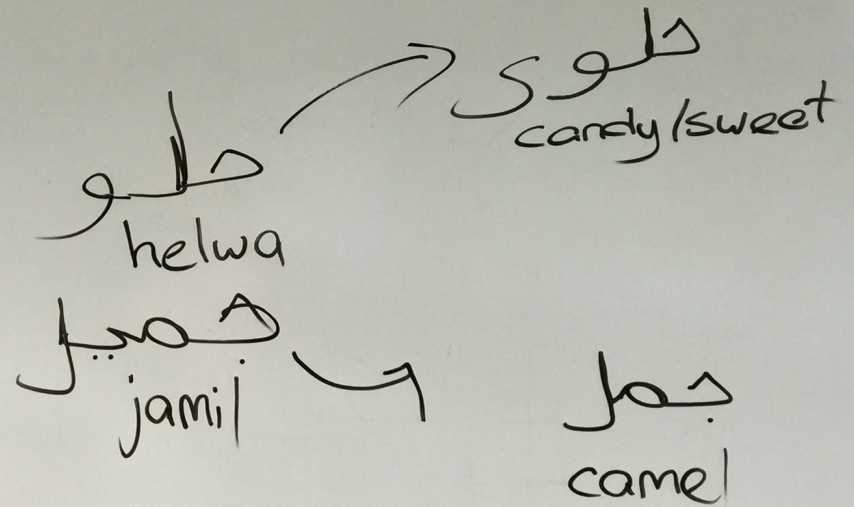 حلوى
candy/sweet
حلو
helwa
جميل
jamil
جمل
camel